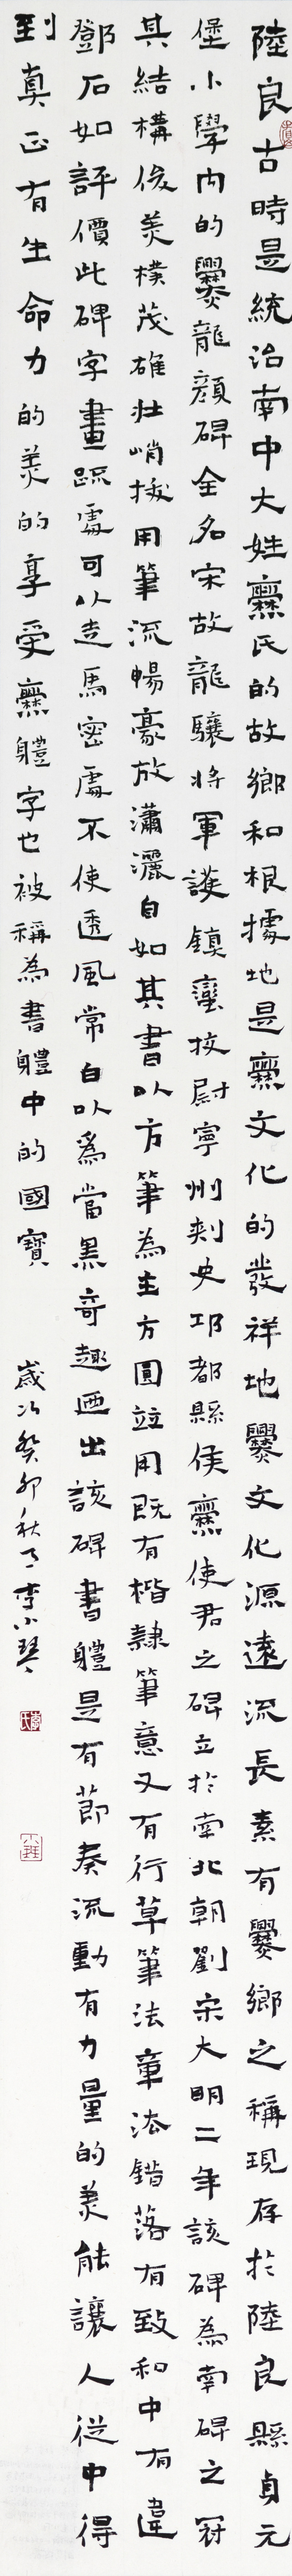 陸良古時是統治南中大姓爨氏的故鄉和根據地是爨文化的發祥地爨文化源遠流長素有爨鄉之稱現存於陸良縣貞元
堡小學內的爨龍顏碑全名宋故龍驤將軍護鎮蠻校尉寧州刺史邛都縣侯爨使君之碑立於南北朝劉宋大明二年該碑為南碑之冠
其結構俊美樸茂雄壯峭拔用筆流暢豪放瀟灑自如其書以方筆為主方圓竝用既有楷隸筆意又有行草筆法章法錯落有致和中有違
鄧石如評價此碑字畫疏處可以走馬密處不使透風常白以為當黑奇趣迺出該碑書體是有節奏流動有力量的美能讓人從中得
到真正有生命力的美的享受爨體字也被稱為書體中的國寶 歲次癸卯秋月李小琴